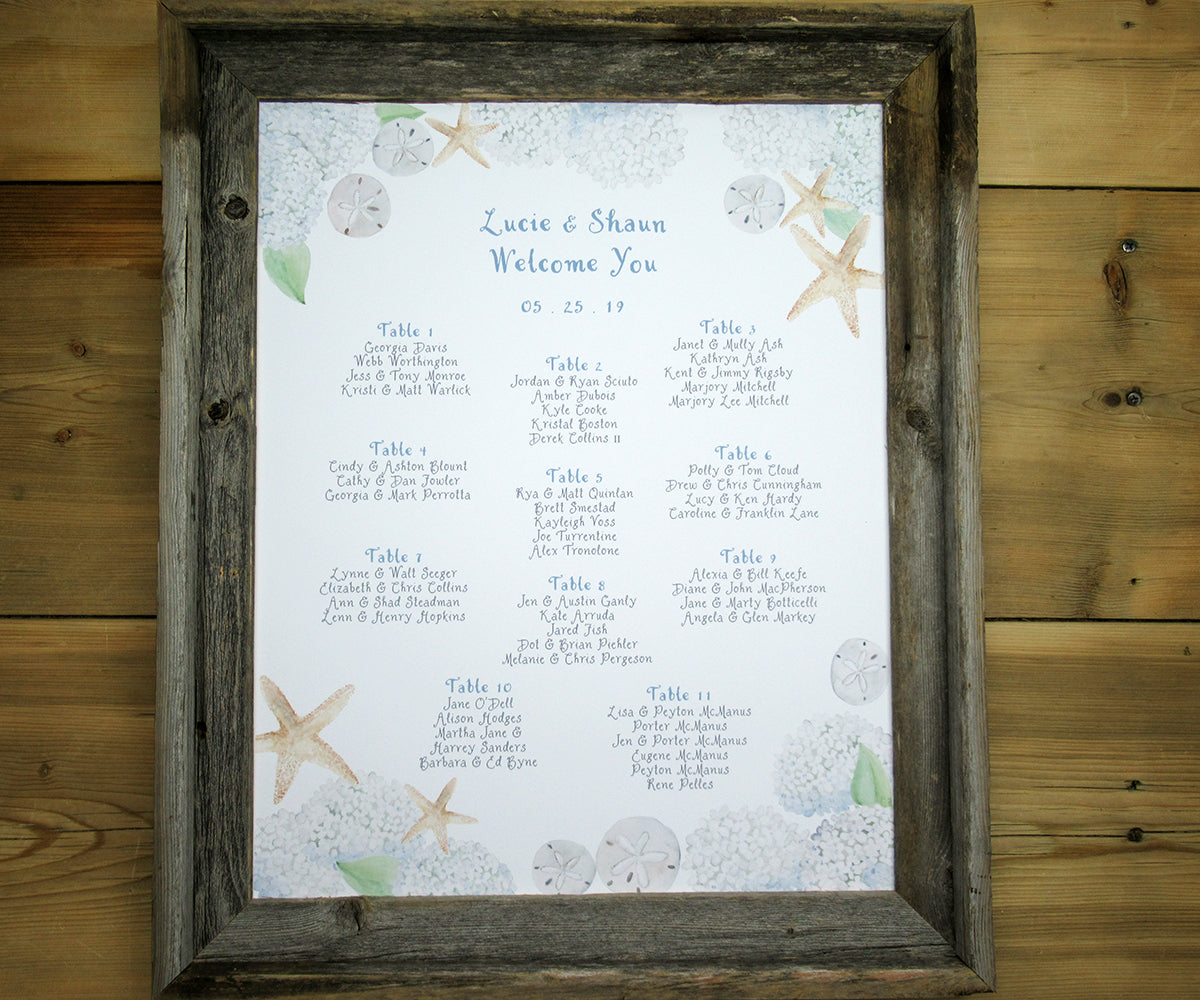 Lucie & Shaun
Welcome You
05 . 25 . 19
Table 1
Georgia Davis
Webb Worthington
Jess & Tony Monroe
Kristi & Matt Warlick
Table 2
Jordan & Ryan Sciuto
Amber Dubois
Kyle Cooke
Kristal Boston
Derek Collins II
Table 3
Janet & Mully Ash
Kathryn Ash
Kent & Jimmy Rigsby
Marjory Mitchell
Marjory Lee Mitchell
Table 4
Cindy & Ashton Blount
Cathy & Dan Fowler
Georgia & Mark Perrotta
Table 5
Rya & Matt Quinlan
Brett Smestad
Kayleigh Voss
Joe Turrentine
Alex Tronolone
Table 6
Polly & Tom Cloud
Drew & Chris Cunningham
Lucy & Ken Hardy
Caroline & Franklin Lane
Table 7
Lynne & Walt Seeger
Elizabeth & Chris Collins
Ann & Shad Steadman
Lenn & Henry Hopkins
Table 8
Jen & Austin Ganly
Kate Arruda
Jared Fish
Dot & Brian Piehler
Melanie & Chris Pergeson
Table 9
Alexia & Bill Keefe
Diane & John MacPherson
Jane & Marty Botticelli
Angela & Glen Markey
Table 10
Jane O'Dell
Alison Hodges
Martha Jane &
Harvey Sanders
Barbara & Ed Byne
Table 11
Lisa & Peyton McManus
Porter McManus
Jen & Porter McManus
Eugene McManus
Peyton McManus
Rene Pelles